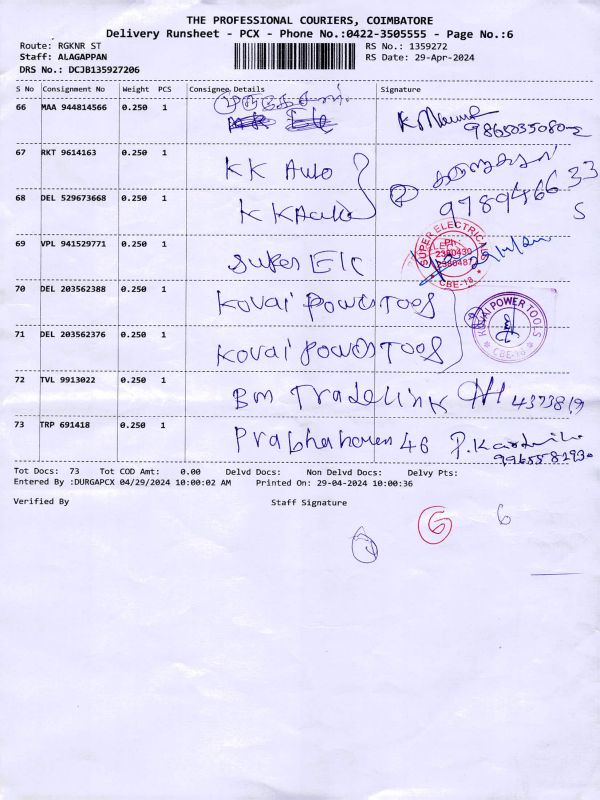 THE PROFESSIONAL COURIERS, COIMBATORE
Delivery Runsheet - PCX - Phone No.:0422-3505555 - Page No.:6
Route: RGKNR ST
RS No.: 1359272
Staff: ALAGAPPAN
RS Date: 29-Apr-2024
DRS No.: DCJB135927206
S No Consignment No Weight PCS Consignee Details Signature
66 MAA 944814566 0.250 1
67 RKT 9614163 0.250 1 KK Auto
68 DEL 529673668 0.250 1 KK Auto
69 VPL 941529771 0.250 1 Super Elc
SUPER ELECTRICALS
Ph
2380430
2380487
CBE-18
70 DEL 203562388 0.250 1 Kovai Power Tools
71 DEL 203562376 0.250 1 Kovai Power Tools
KOVAI POWER TOOLS
CBE-18
72 TVL 9913022 0.250 1 Bm Tradelink
73 TRP 691418 0.250 1 46
Tot Docs: 73 Tot COD Amt: 0.00 Delvd Docs: Non Delvd Docs: Delvy Pts:
Entered By :DURGAPCX 04/29/2024 10:00:02 AM Printed On: 29-04-2024 10:00:36
Verified By Staff Signature
6 6